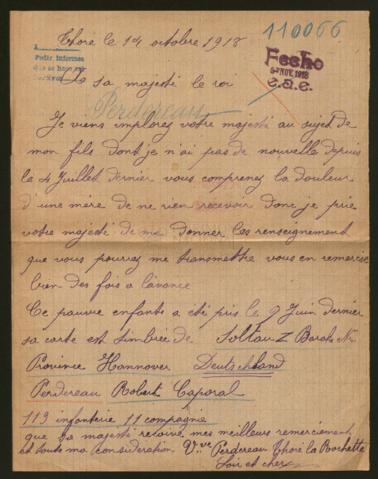 Thoré le 14 octobre 1918
110066
Pedir informes
Fecho
5 NOV. 1918
e.a.e.
A sa majesté le roi
Perdereau
Je viens implorez votre majesté au sujet de
mon fils dont je n'ai pas de nouvelle depuis
le 4 Juillet dernier vous comprenez la douleur
d'une mère de ne rien recevoir donc je prie
votre majesté de me donner les renseignement
que vous pourrez me transmettre vous en remercie
bien des fois a lavance
Ce pauvre enfants a été pris le 9 Juin dernier
sa carte est timbrée de Soltau Z
Province Hannover Deutschland
Perdereau Robert Caporal
113 infanterie 11 compagnie
que sa majesté recoive mes meilleurs remerciement
et toute ma considération. Vve Perdereau Thoré la Rochette
Loir et cher